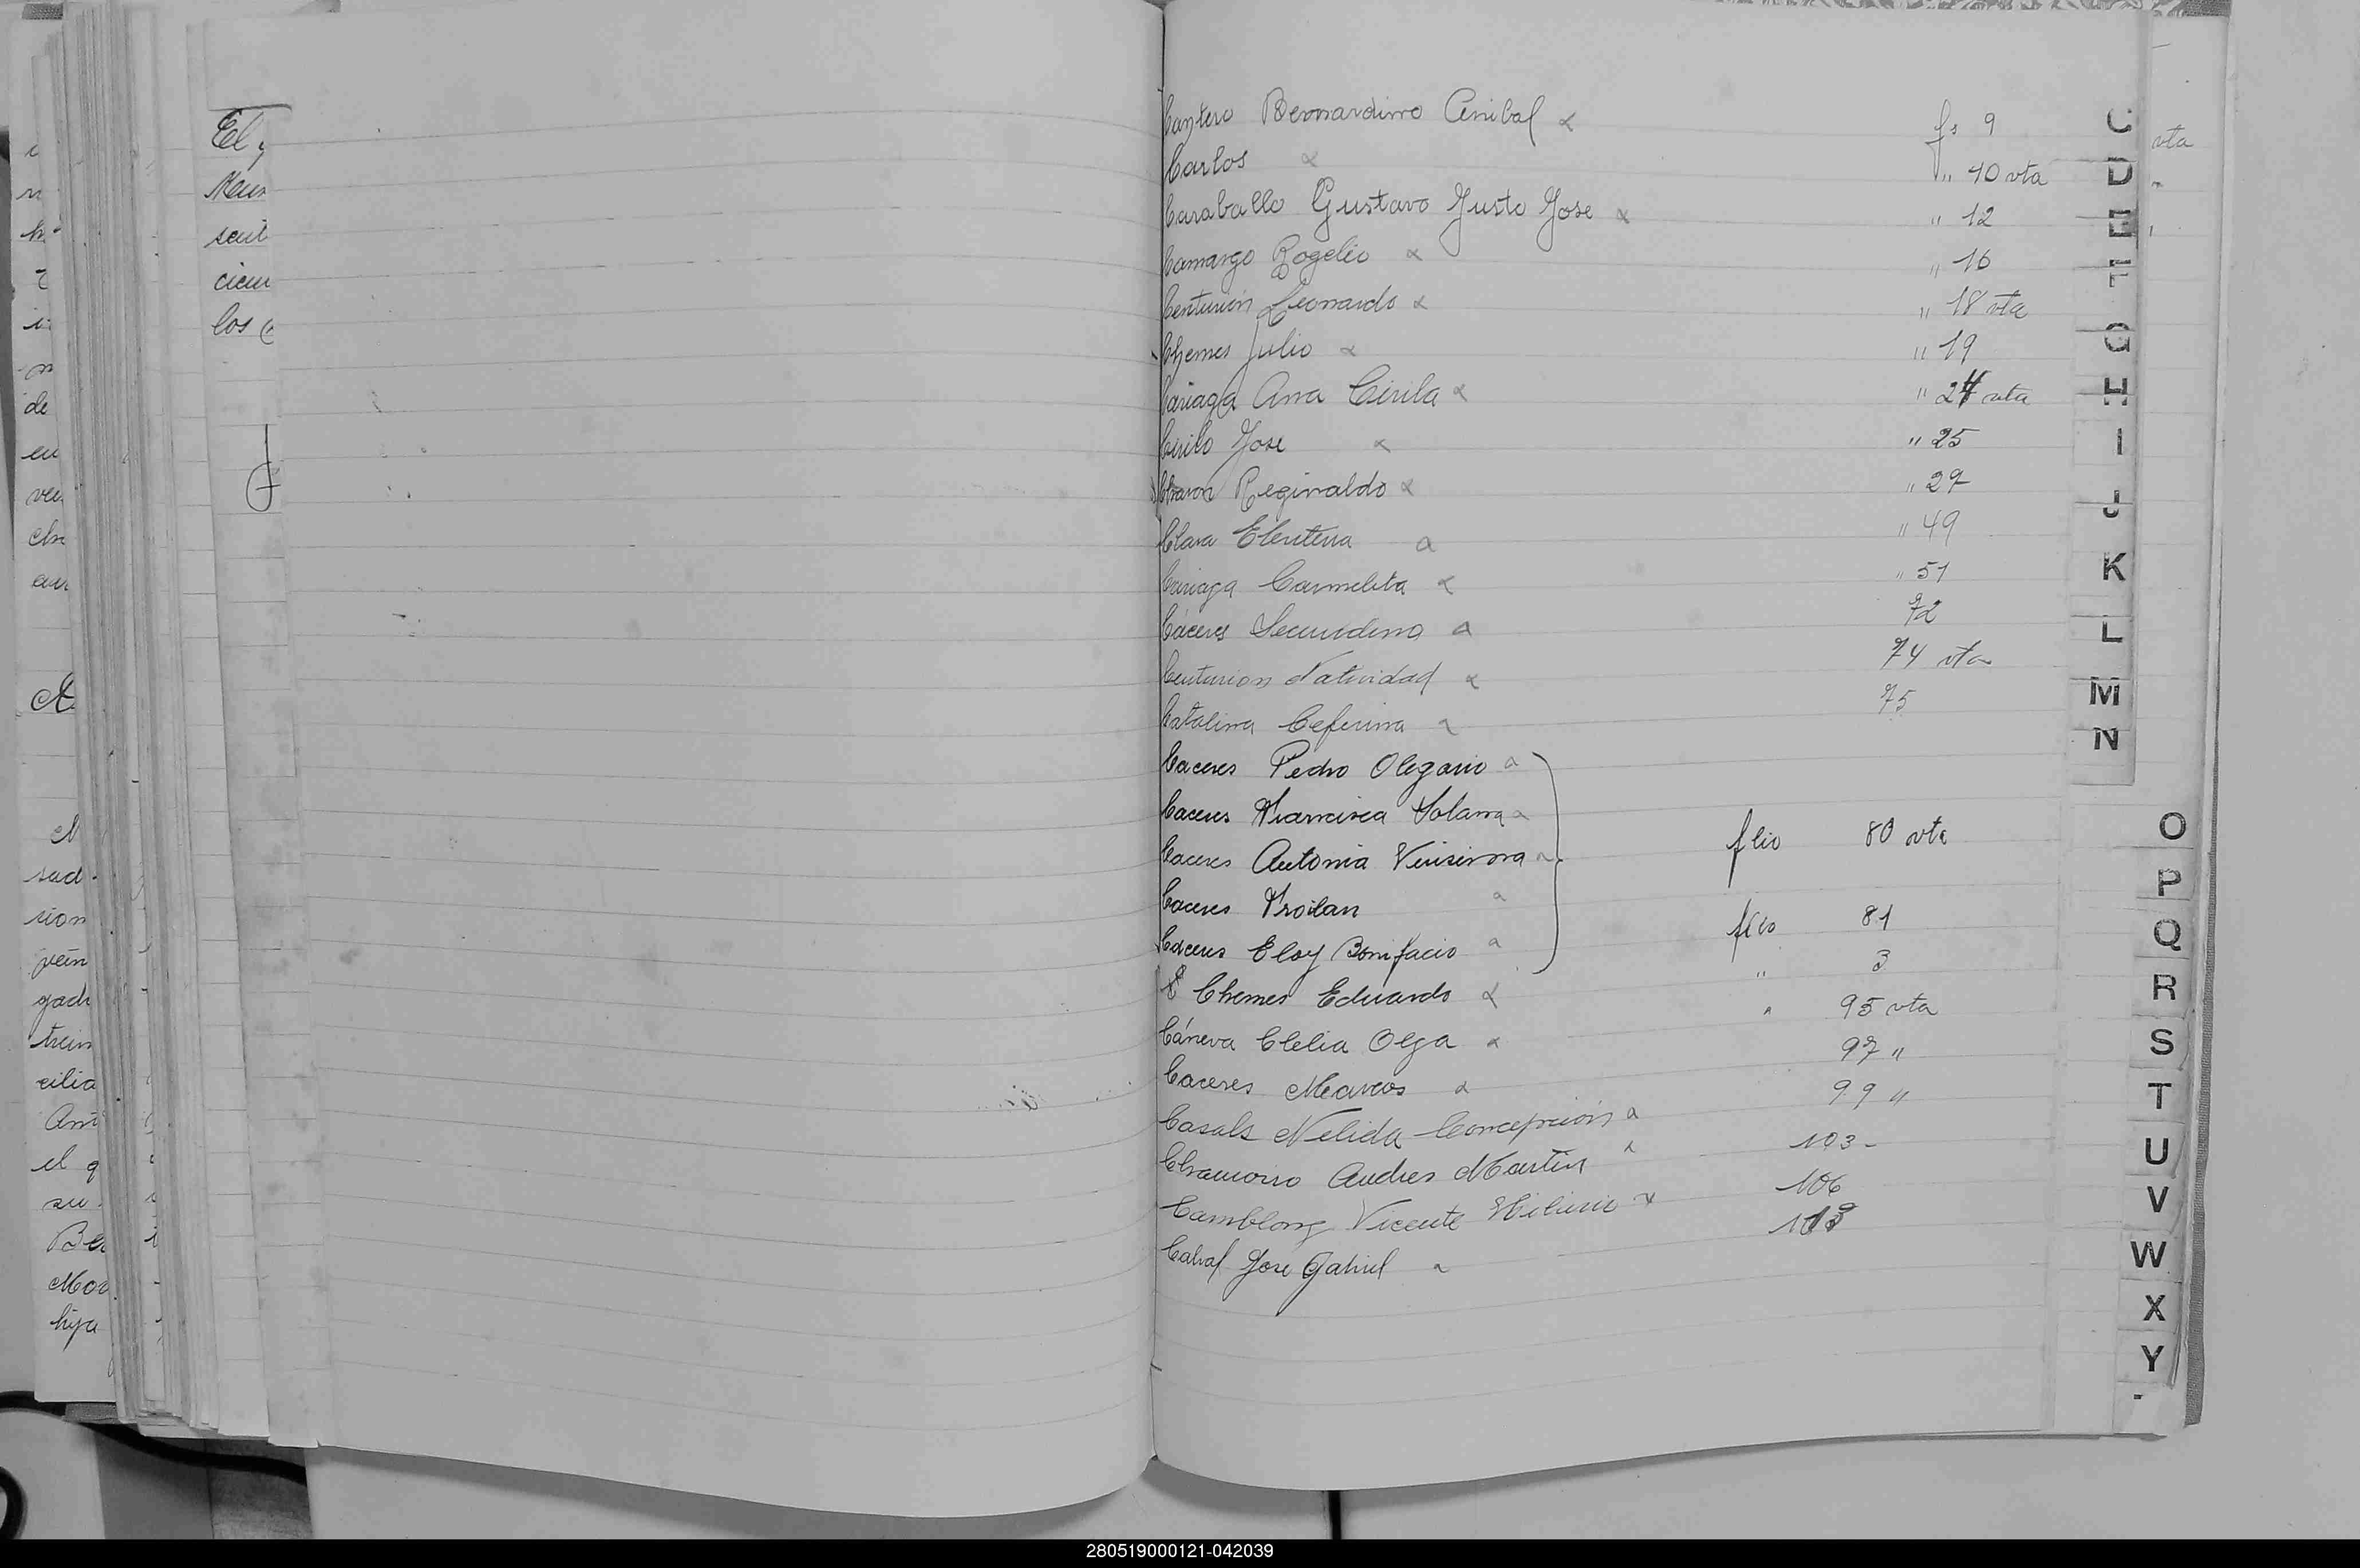 Cantero Bernardino Anibal fs 9
Carlos " 10 vta
Caraballo Gustavo Justo Jose " 12
Camargo Rogelio " 16
Centurión Leonardo " 18 vta
Chemes Julio " 19
Cariaga Ana Cirila " 24 vta
Cirilo Jose " 25
Reginaldo " 27
Clara Eleuteria " 49
Cariaga Carmelita " 51
Cáceres Secundina 72
Centurion Natividad 74 vta
Catalina Ceferina 75
Caceres Pedro Olegario
Caceres Francisca Solana
Caceres Antonia Verisima flio 80 vta
Caceres Froilan
Caceres Eloy Bonifacio flio 81
Chemes Eduardo " 3
Cáneva Clelia Olga " 95 vta
Caceres Marcos 97 "
Casals Nelida Concepción 99 "
Chamorro Andres Martin 103 -
Camblong Vicente Hilario 106
Cabral Jose Gabriel
vta
C
D
E
F
G
H
I
J
K
L
M
N
O
P
Q
R
S
T
U
V
W
X
Y
El y
scut
cien
los
de
en
A
sion
gad
cilia
el q
su
hija
280519000121-042039